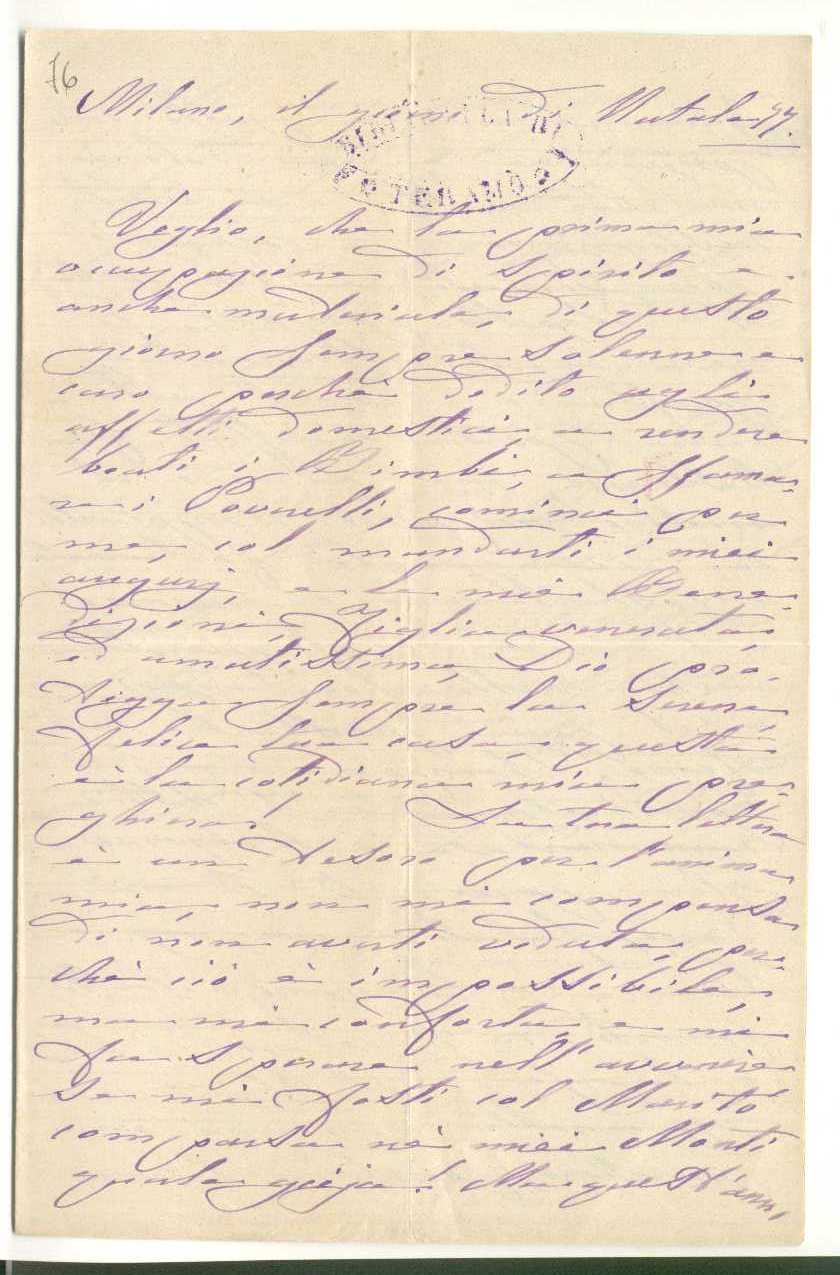 76
Milano, il giorno di Natale 77.
TERAMO
Voglio, che la prima mia
occupazione di spirito e
anche materiale, di questo
giorno sempre solenne e
caro perchè dedito agli
affetti domestici, a rendere
beati i Bimbi, a sfama-
re i Poverelli, cominci per
me, col mandarti i miei
augurj, e la mia Bene-
dizione, Figlia venerata,
ed amatissima, Dio pro-
tegga sempre la serena,
felice tua casa, questa
è la cotidiana mia pre-
ghiera! La tua lettera
è un tesoro per l'anima
mia, non mi compensa
di non averti veduta, per-
chè ciò è impossibile,
ma mi conforta, e mi
fa sperare nell'avvenire
se mi fosti col Marito
comparsa nè miei Monti
quale gioja! Ma quest'anno,